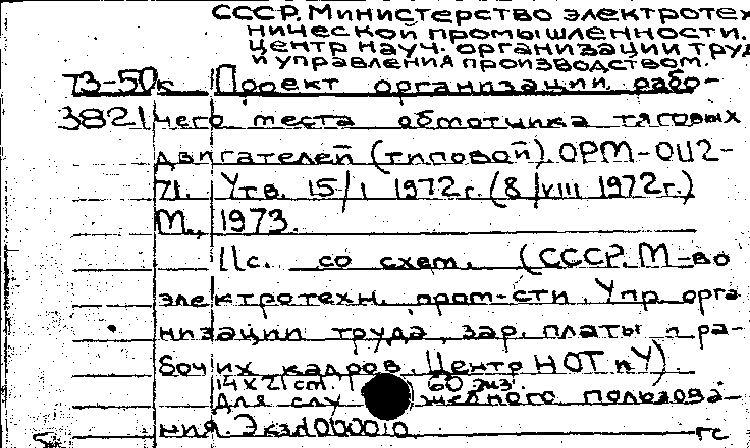 СССР. Министерство электротех
нической промышленности.
Центр науч. организации труд
и управления производством.
73-50к Проект организации рабо-
3821 чего места обмотчика тяговых
двигателей (типовой). ОРМ-0112-
71. Утв. 15/I 1972г. (8/VIII 1972г.)
М., 1973.
11с. со схем. (СССР. М-во
электротехн. пром-сти. Упр. орга
низации труда, зар. платы и ра-
бочих кадров. Центр НОТ и У)
14 х 21 cm. 60 экз.
Для слу жебного пользова-
ния. Экз. 000010
гс